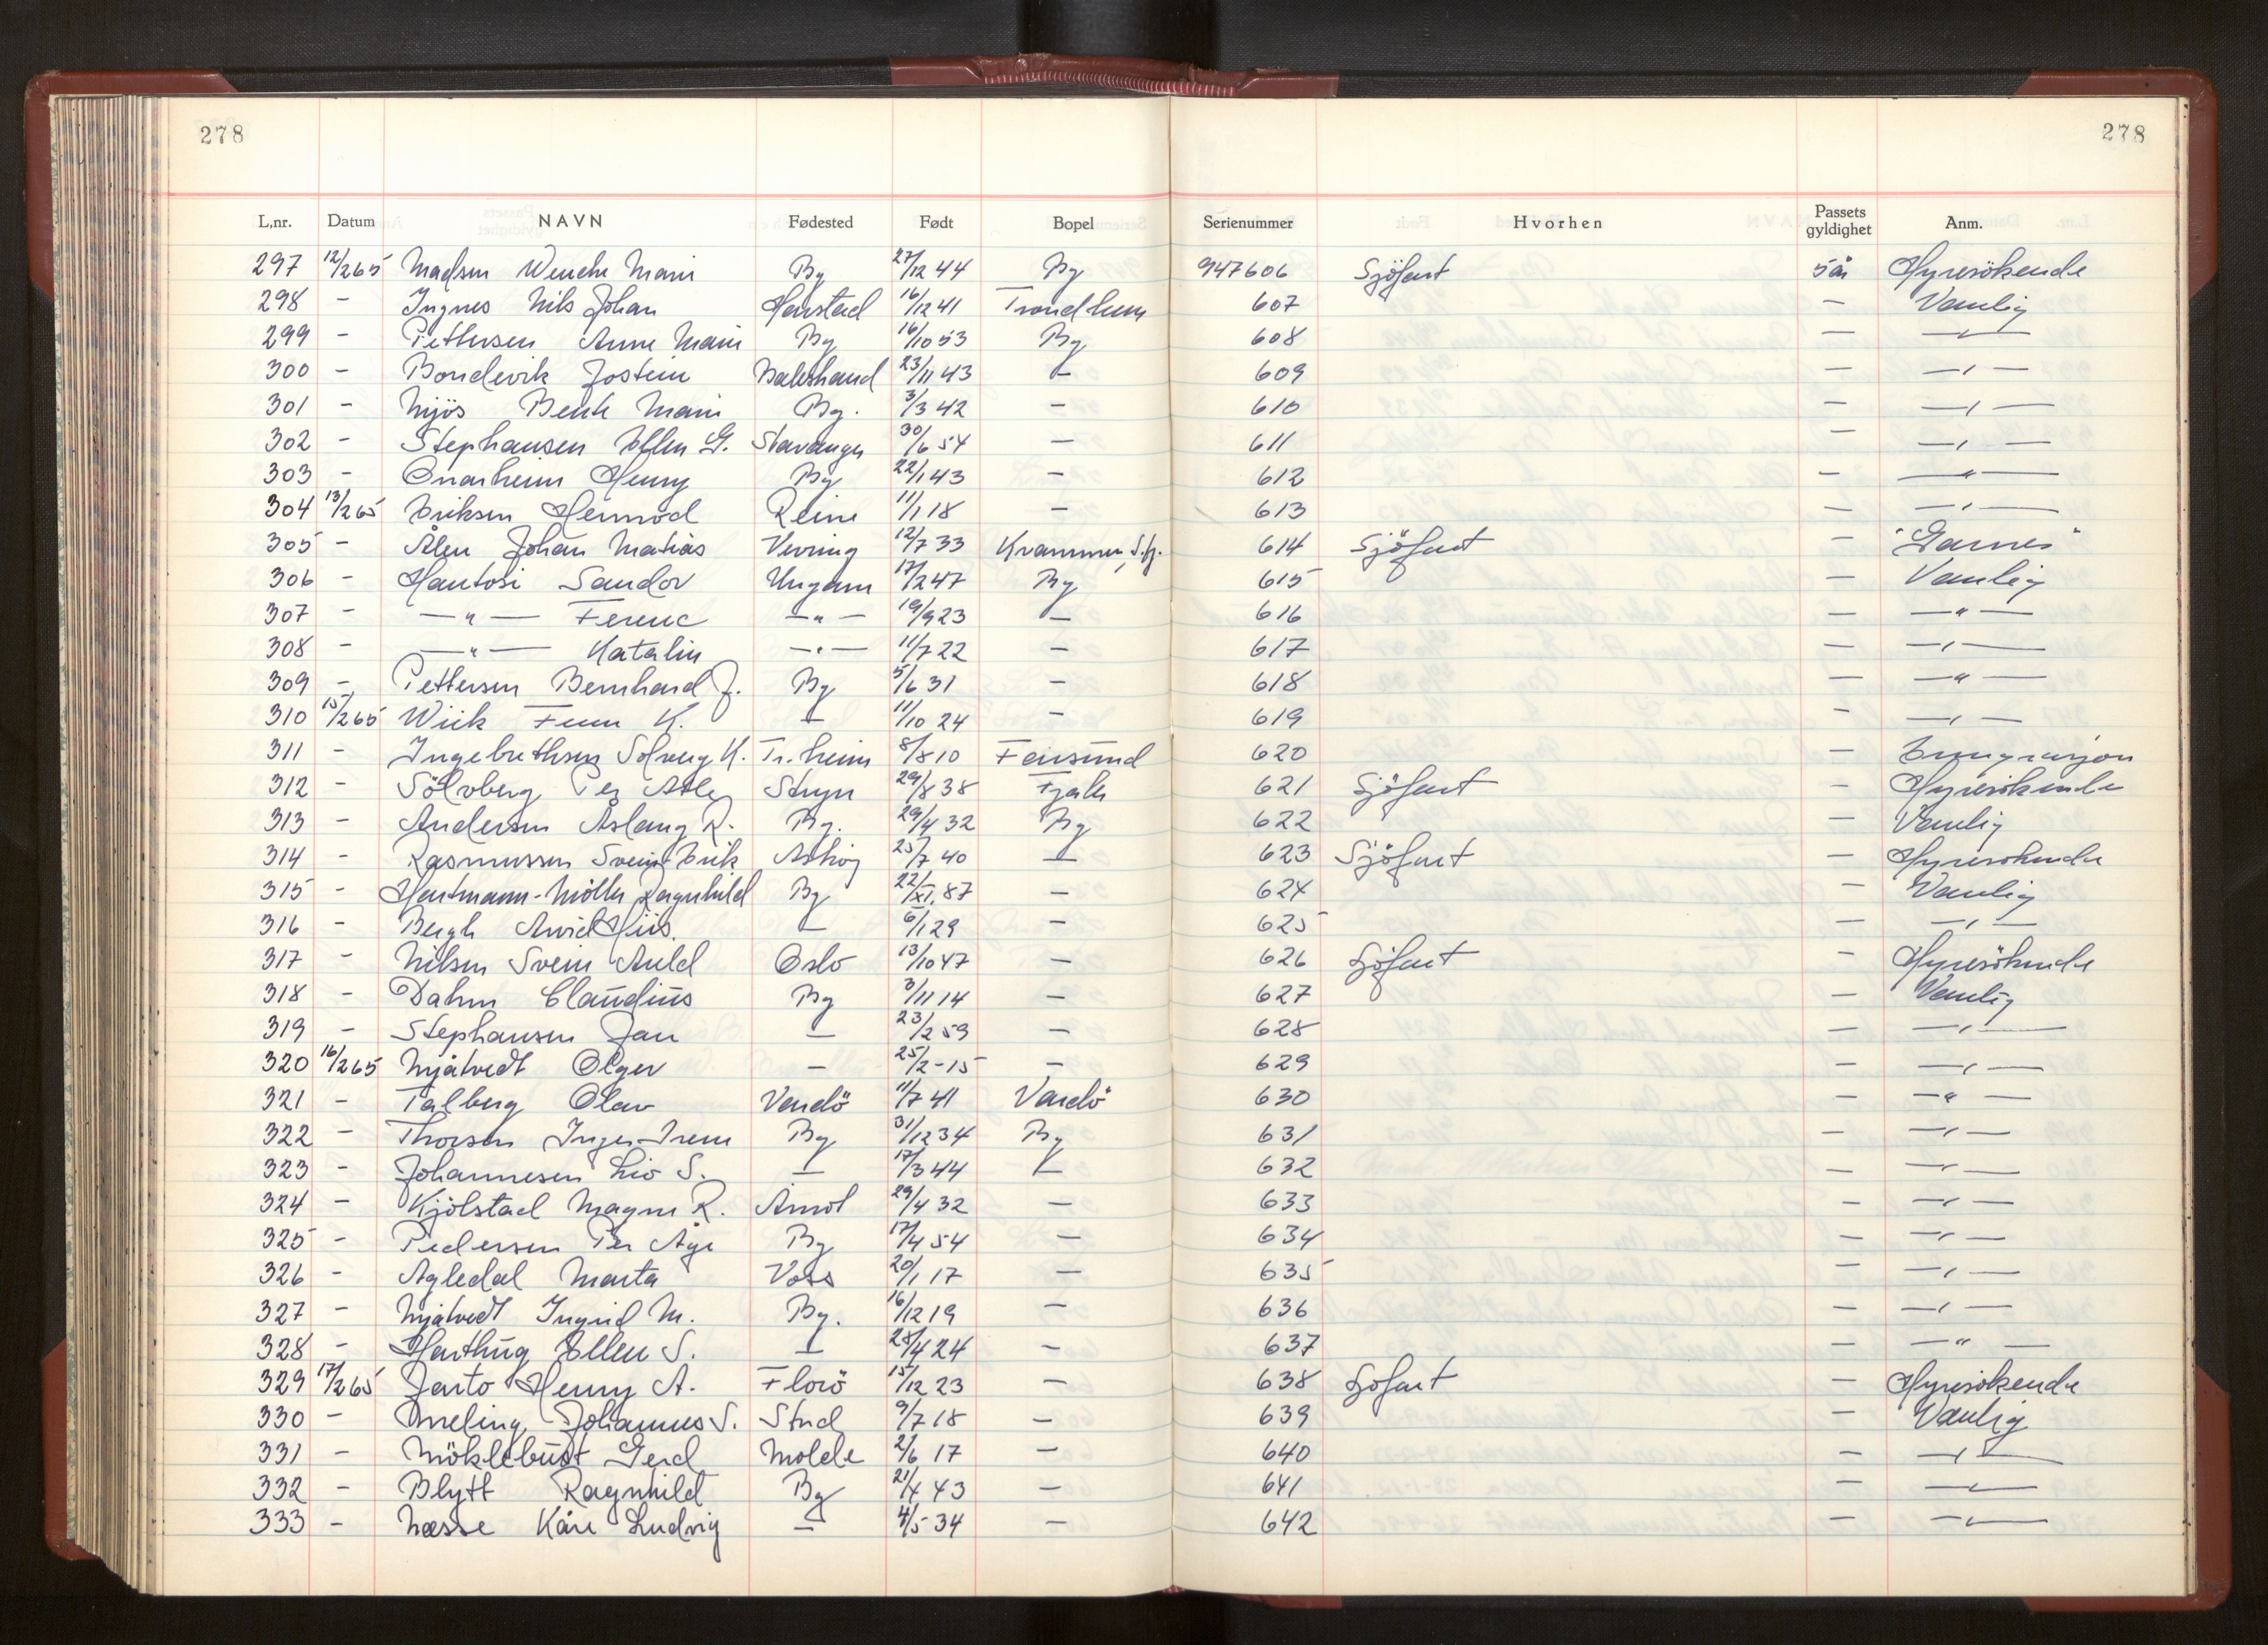 278 278
L,nr. Datum NAVN Fødested Født Bopel Serienummer Hvorhen Passets gyldighet Anm.
297 12/2 65 Madsen Wenche Marie By 27/12 44 By 947606 Sjöfart 5 år Hyresökende
298 - Ingnes Nils Johan Harstad 16/12 41 Trondheim 607 — Vanlig
299 - Pettersen Anne Marie By 16/10 53 By 608 — — " —
300 - Bondevik Jostein Balestrand 23/11 43 — 609 — — " —
301 - Mjös Bente Marie By. 3/3 42 — 610 — — " —
302 - Stephansen Ellen G. Stavanger 30/6 54 — 611 — — " —
303 - Onarheim Henry By 22/1 43 — 612 — — " —
304 13/2 65 Eriksen Hermod Reine 11/1 18 — 613 — — " —
305 - Ålen Johan Matias Vevring 12/7 33 Kvammen, S.fj. 614 Sjöfart — "Garnes"
306 - Hantosi Sandor Ungarn 17/2 47 By 615 — Vanlig
307 - — " — Ferenc — " — 19/9 23 — 616 — — " —
308 - — " — Katalin — " — 11/7 22 — 617 — — " —
309 - Pettersen Bernhard J. By 5/6 31 — 618 — — " —
310 15/2 65 Wiik Finn K. — 11/10 24 — 619 — — " —
311 - Ingebrethsen Solveig K. Tr.heim 8/8 10 Feiesund 620 — Emigrasjon
312 - Sölvberg Per Atle Stryn 29/8 38 Fjaler 621 Sjöfart — Hyresökende
313 - Andersen Aslaug R. By. 29/4 32 By 622 — Vanlig
314 - Rasmussen Svein Erik Askøy 25/7 40 — 623 Sjöfart — Hyresökende
315 - Hartmann-Möller Ragnhild By 22/XI. 87 — 624 — Vanlig
316 - Bergh Arvid Hiis. — 6/1 29 — 625 — — " —
317 - Nilsen Svein Arild Oslo 13/10 47 — 626 Sjöfart — Hyresökende
318 - Dahm Claudius By 3/11 14 — 627 — Vanlig
319 - Stephansen Jan — 23/2 59 — 628 — — " —
320 16/2 65 Mjåtvedt Olger — 25/2-15 — 629 — — " —
321 - Talberg Olav Vardö 11/7 41 Vardö 630 — — " —
322 - Thorsen Inger-Irene By 31/12 34 By 631 — — " —
323 - Johannesen Liv S. — 17/3 44 — 632 — — " —
324 - Kjölstad Magne R. Åmot 29/4 32 — 633 — — " —
325 - Pedersen Per Åge By 17/4 54 — 634 — — " —
326 - Agledal Marta Voss 20/1 17 — 635 — — " —
327 - Mjåtvedt Ingrid M. By. 16/12 19 — 636 — — " —
328 - Harthug Ellen S. — 28/4 24 — 637 — — " —
329 17/2 65 Jarto Henry A. Florö 15/12 23 — 638 Sjöfart — Hyresökende
330 - Ameling Johannes S. Strd 9/7 18 — 639 — Vanlig
331 - Möklebust Gerd Molde 2/6 17 — 640 — — " —
332 - Blytt Ragnhild By 21/4 43 — 641 — — " —
333 - Næsse Kåre Ludvig — 4/5 34 — 642 — — " —